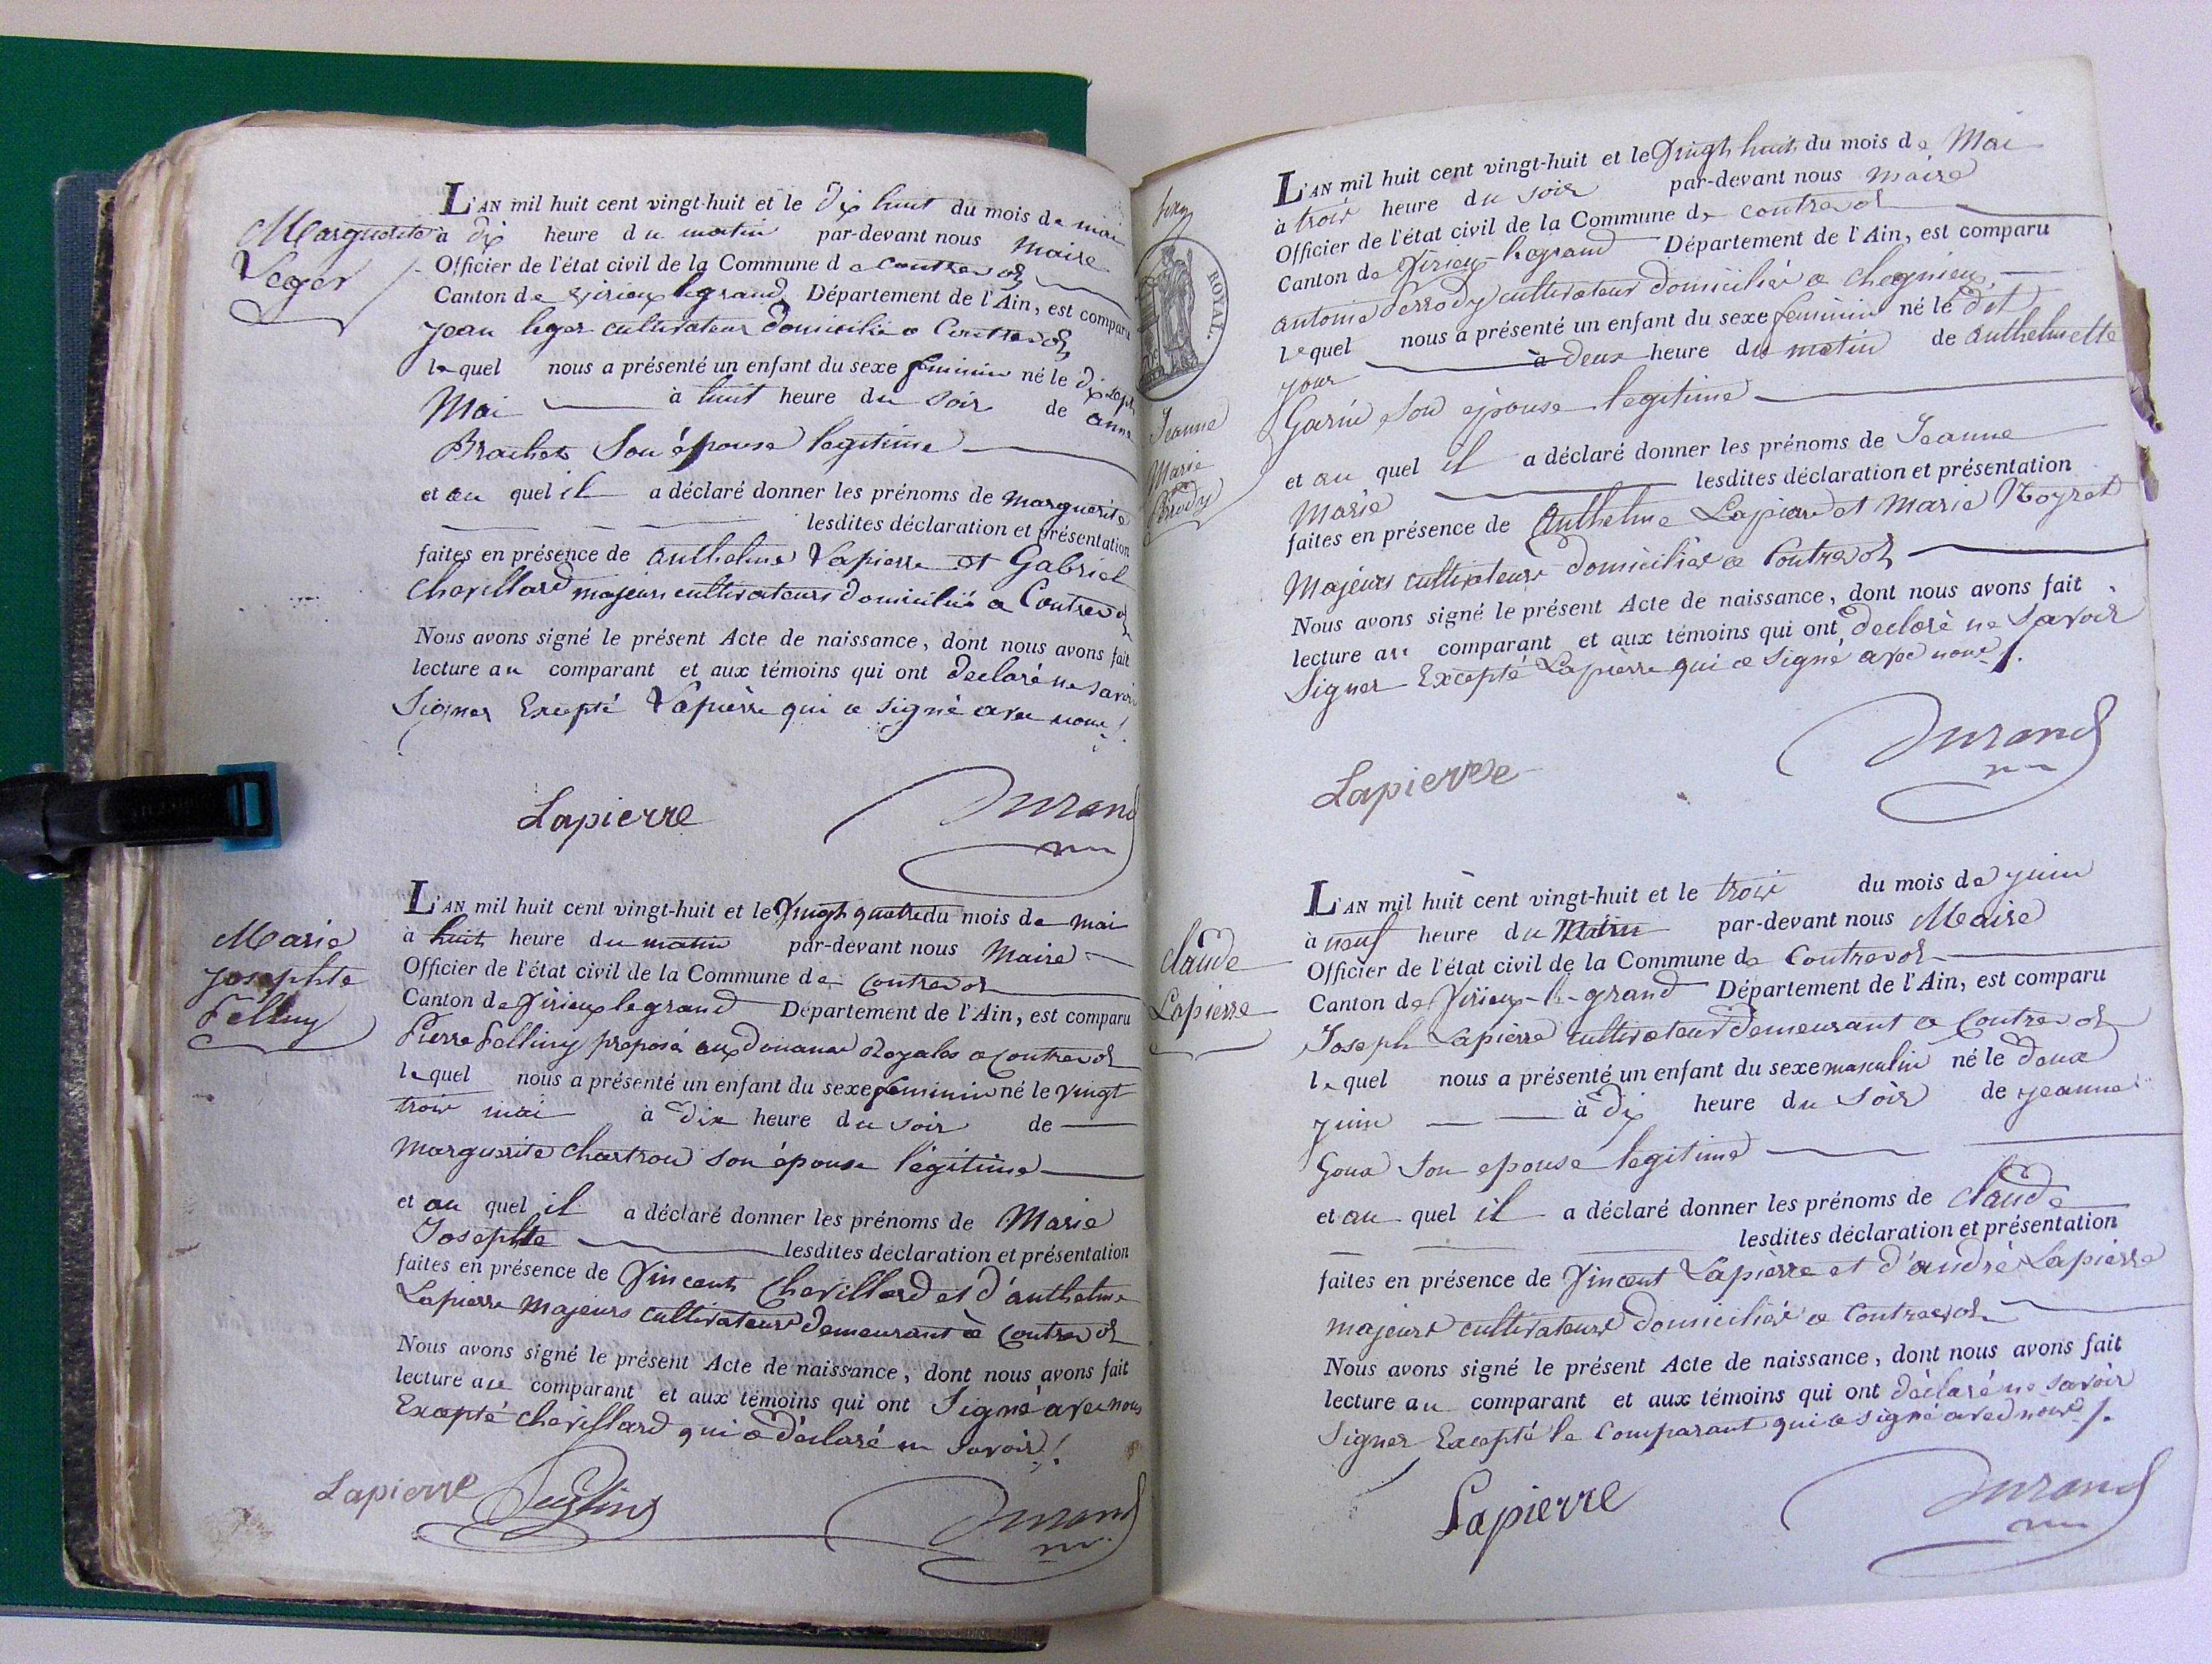 Marguerite
Leger
L'AN mil huit cent vingt-huit et le dix huit du mois de mai
à dix heure du matin par-devant nous Maire
Officier de l'état civil de la Commune de contrevoz
Canton de Virieux legrand Département de l'Ain, est comparu
jean leger cultivateur domicilié a Contrevoz
lequel nous a présenté un enfant du sexe feminin né le dix sept
Mai à huit heure du soir de anne
Brachet Son épouse legitime
et au quel il a déclaré donner les prénoms de marguerite
lesdites déclaration et présentation
faites en présence de anthelme Lapierre et Gabriel
chevillard majeurs cultivateurs domiciliés a Contrevoz
Nous avons signé le présent Acte de naissance, dont nous avons fait
lecture au comparant et aux témoins qui ont declaré ne savoir
Signer Excepté Lapierre qui a signé avec nous
Lapierre Durand
Marie
josephte
L'AN mil huit cent vingt-huit et le Vingt quatre du mois de mai
à huit heure du matin par-devant nous Maire
Officier de l'état civil de la Commune de contrevoz
Canton de Virieux legrand Département de l'Ain, est comparu
Pierre préposé aux douanes Royales a contrevoz
lequel nous a présenté un enfant du sexe feminin né le vingt
trois mai à dix heure du soir de
marguerite chartrou son épouse légitime
et au quel il a déclaré donner les prénoms de Marie
Josephte lesdites déclaration et présentation
faites en présence de Vincent Chevillard et d'anthelme
Lapierre Majeurs cultivateurs demeurant à contrevoz
Nous avons signé le présent Acte de naissance, dont nous avons fait
lecture au comparant et aux témoins qui ont Signé avec nous
Excepté chevillard qui a déclaré ne savoir
Lapierre Durand
ROYAL.
Jeanne
Marie
Perrody
L'AN mil huit cent vingt-huit et le Vingt huit du mois de Mai
à trois heure du soir par-devant nous maire
Officier de l'état civil de la Commune de contrevoz
Canton de Virieu-legrand Département de l'Ain, est comparu
antoine Perrody cultivateur domicilié a chegnieu
lequel nous a présenté un enfant du sexe feminin né le dit
jour à deux heure du matin de anthelmette
Garin son épouse legitime
et au quel il a déclaré donner les prénoms de Jeanne
Marie lesdites déclaration et présentation
faites en présence de Anthelme Lapierre et Marie Noyret
Majeurs cultivateurs domiciliés a Contrevoz
Nous avons signé le présent Acte de naissance, dont nous avons fait
lecture au comparant et aux témoins qui ont declaré ne savoir
Signer Excepté Lapierre qui a signé avec nous
Lapierre Durand
claude
Lapierre
L'AN mil huit cent vingt-huit et le trois du mois de juin
à neuf heure du Matin par-devant nous Maire
Officier de l'état civil de la Commune de Contrevoz
Canton de Virieux-le-grand Département de l'Ain, est comparu
Joseph Lapierre cultivateur demeurant a Contrevoz
lequel nous a présenté un enfant du sexe masculin né le deux
juin à dix heure du Soir de jeanne
Goux son epouse legitime
et au quel il a déclaré donner les prénoms de claude
lesdites déclaration et présentation
faites en présence de Vincent Lapierre et d'andré Lapierre
majeurs cultivateurs domiciliés a Contrevoz
Nous avons signé le présent Acte de naissance, dont nous avons fait
lecture au comparant et aux témoins qui ont déclaré ne savoir
Signer Excepté le Comparant qui a signé avec nous
Lapierre Durand